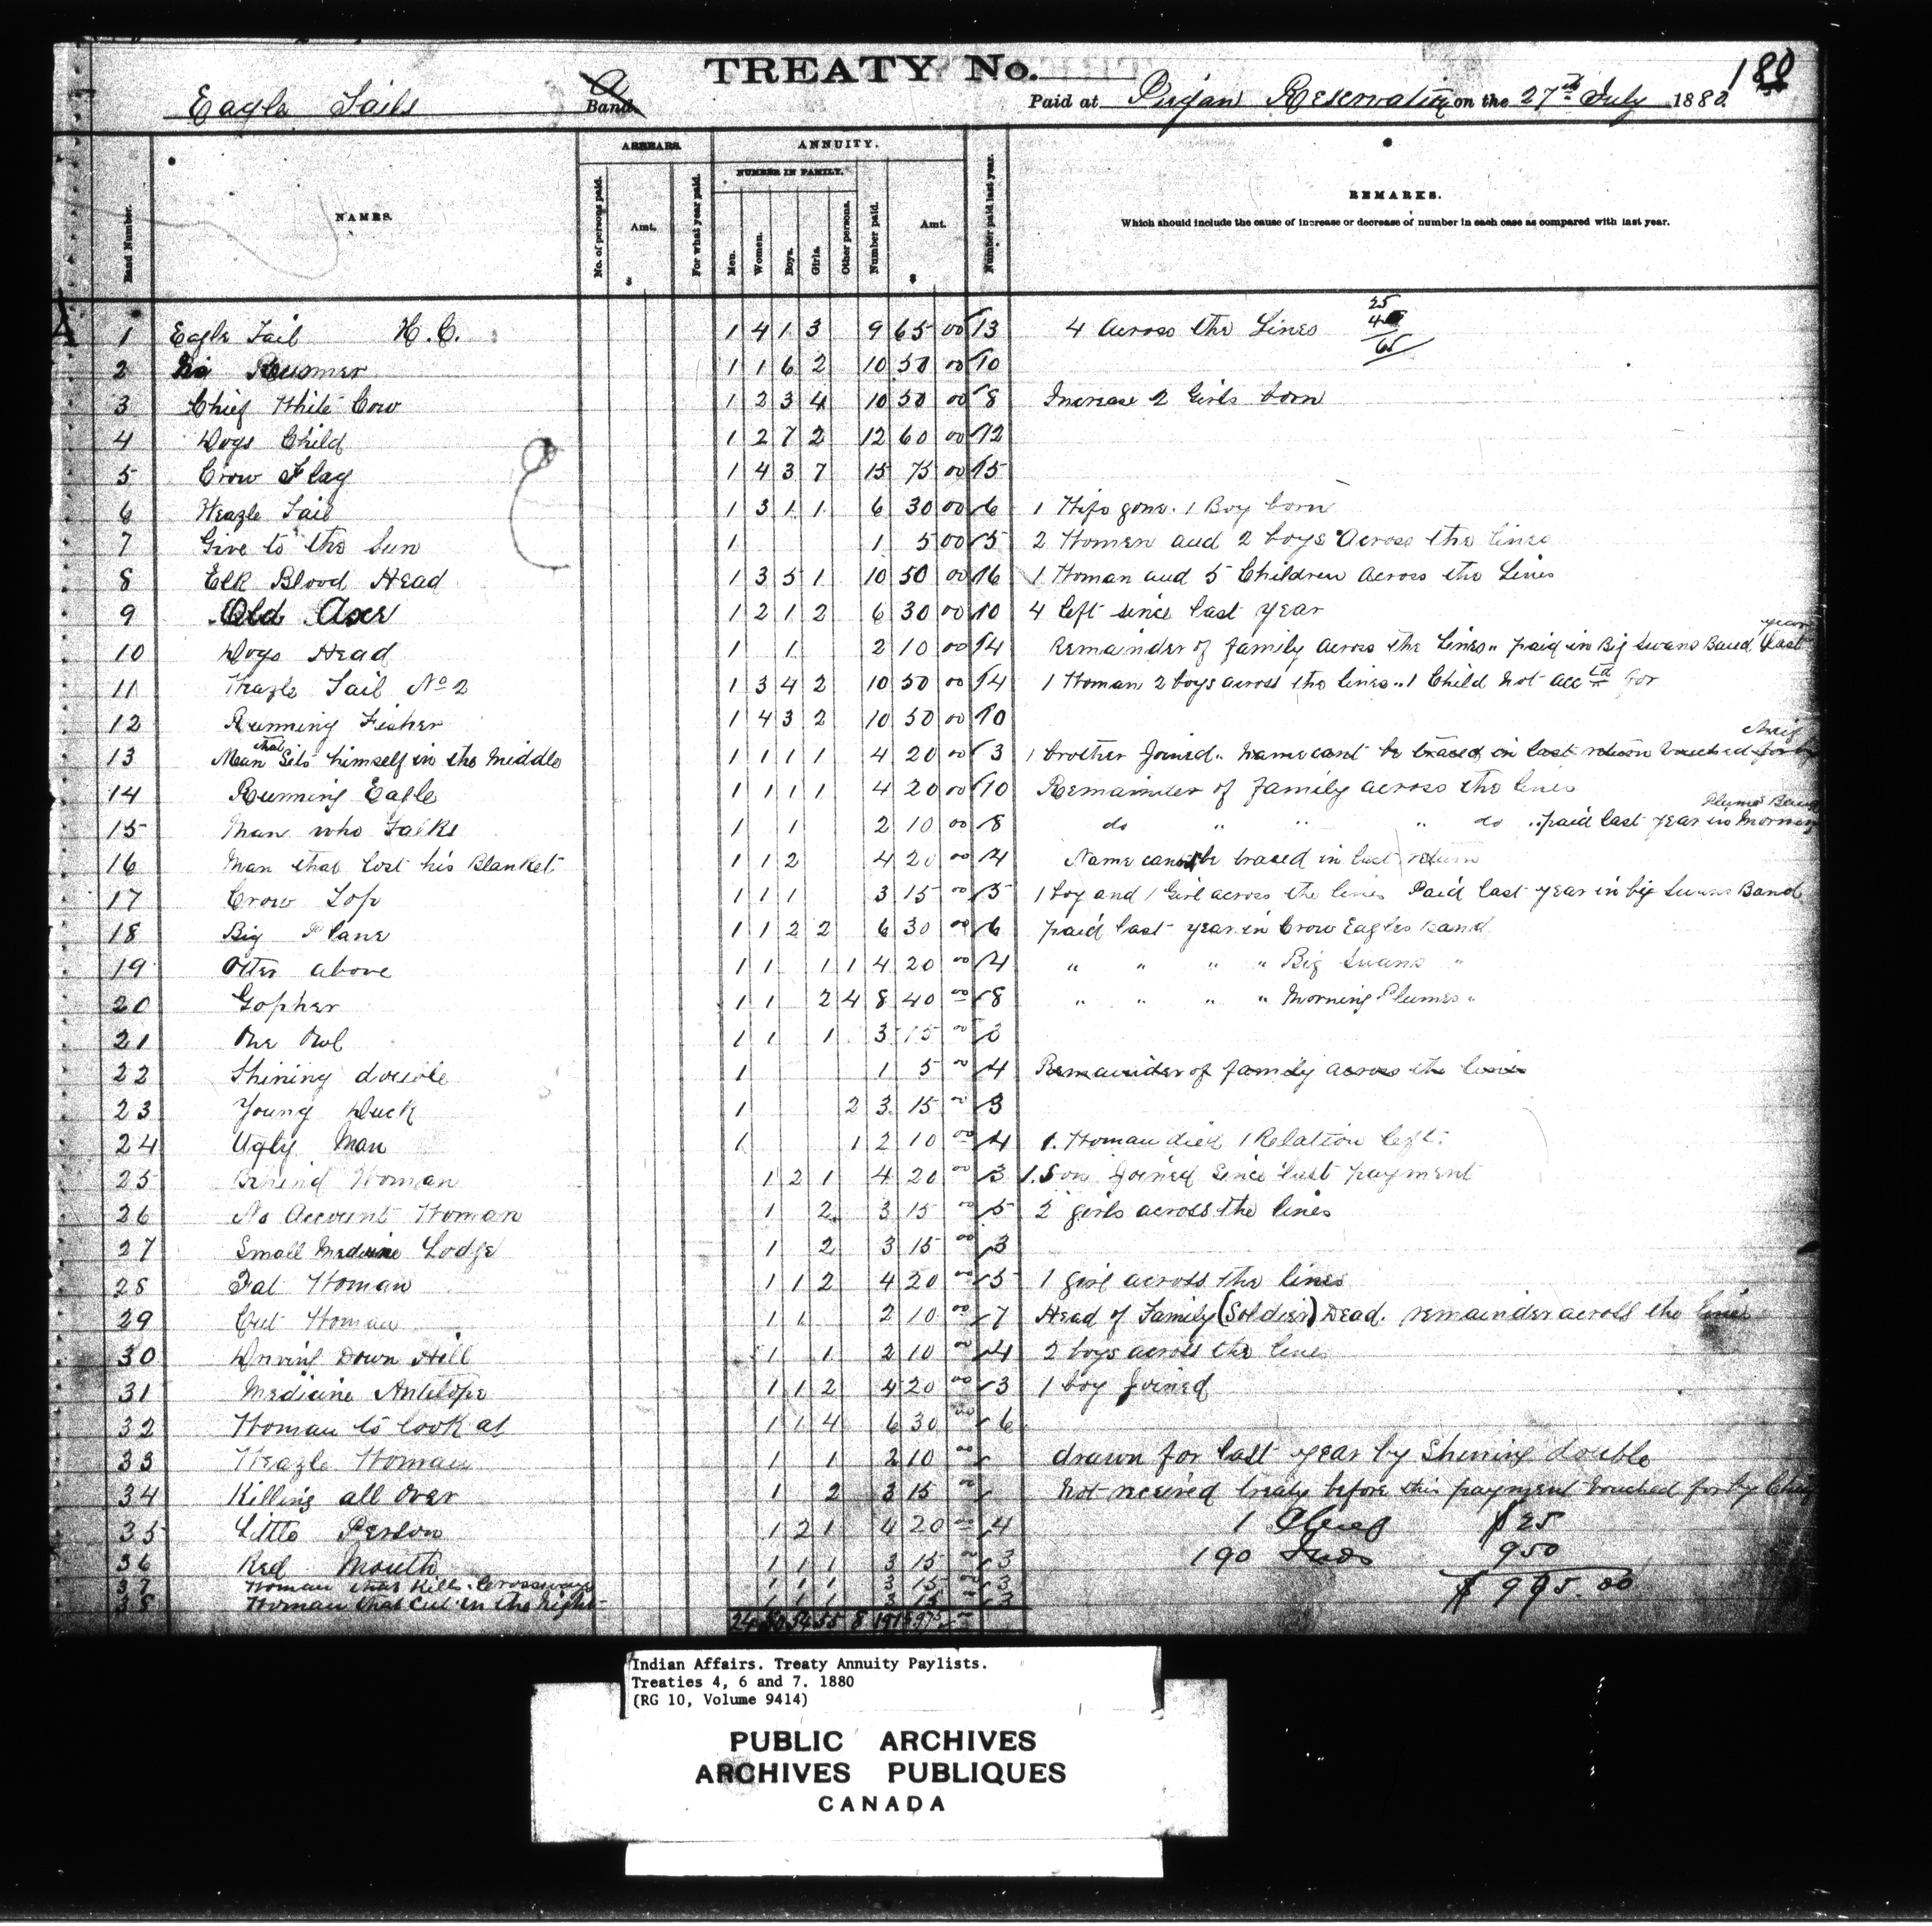 TREATY No.
180
Eagle Tails Band
Paid at Piegan Reservation on the 27th July 1880.
ARREARS. ANNUITY.
NUMBER IN FAMILY.
Band Number. NAMES. No. of persons paid. Amt. For what year paid. Men. Women. Boys. Girls. Other persons. Number paid. Amt. Number paid last year.
REMARKS.
Which should include the cause of increase or decrease of number in each case as compared with last year.
$ $
A
25
40
65
1 Eagle Tail H.C. 1 4 1 3 9 65 00 13 4 Across the Lines
2 Runner 1 1 6 2 10 50 00 10
3 Chief White Cow 1 2 3 4 10 50 00 8 Increase 2 Girls born
4 Dogs Child 1 2 7 2 12 60 00 12
5 Crow Flag 1 4 3 7 15 75 00 15
6 Weazle Tail 1 3 1 1 6 30 00 6 1 Wife gone. 1 Boy born
7 Give to the Sun 1 1 5 00 5 2 Women and 2 boys Across the lines
8 Elk Blood Head 1 3 5 1 10 50 00 16 1 Woman and 5 Children across the Lines
9 Old Axe 1 2 1 2 6 30 00 10 4 left since last year
10 Dogs Head 1 1 2 10 00 14 Remainder of family across the Lines " paid in Big Swans Band last year
11 Weazle Tail No 2 1 3 4 2 10 50 00 14 1 Woman 2 boys across the lines " 1 Child not acctd for
12 Running Fisher 1 4 3 2 10 50 00 10
13 Man that Sits himself in the Middle 1 1 1 1 4 20 00 3 1 brother Joined " Name cant be traced in last return vouched for by Chief
14 Running Eagle 1 1 1 1 4 20 00 10 Remainder of family across the lines
15 Man who Talks 1 1 2 10 00 8 do " " " do " paid last year in Morning Plumes Band
16 Man that lost his Blanket 1 1 2 4 20 00 4 Name cannot be traced in last return
17 Crow Top 1 1 1 3 15 00 5 1 boy and 1 Girl across the lines Paid last year in big Swans Band
18 Big Plane 1 1 2 2 6 30 00 6 paid last year in Crow Eagles Band
19 Otter above 1 1 1 1 4 20 00 4 " " " " Big Swans "
20 Gopher 1 1 2 4 8 40 00 8 " " " " Morning Plumes "
21 One Owl 1 1 1 3 15 00 3
22 Shining double 1 1 5 00 4 Remainder of family across the lines
23 Young Duck 1 2 3 15 00 3
24 Ugly Man 1 1 2 10 00 4 1 Woman died 1 Relation left.
25 Behind Woman 1 2 1 4 20 00 3 1 Son Joined Since last payment
26 No Account Woman 1 2 3 15 00 5 2 girls across the lines
27 Small Medicine Lodge 1 2 3 15 00 3
28 Fat Woman 1 1 2 4 20 00 5 1 girl across the lines
29 Cut Woman 1 1 2 10 00 7 Head of Family (Soldier) Dead. remainder across the lines
30 Driving Down Hill 1 1 2 10 00 4 2 boys across the lines
31 Medicine Antelope 1 1 2 4 20 00 3 1 boy Joined
32 Woman to look at 1 1 4 6 30 00 6
33 Weazle Woman 1 1 2 10 00 drawn for last year by Shining double
34 Killing all over 1 2 3 15 00 Not received treaty before this payment vouched for by Chief
35 Little Person 1 2 1 4 20 00 4 1 Chief $25
36 Red Mouth 1 1 1 3 15 00 3 190 Inds 950
37 Woman that Kills Crossways 1 1 1 3 15 00 3 $975.00
38 Woman that Cut in the night 1 1 1 3 15 00 3
24 50 54 55 8 191 $975 00
Indian Affairs. Treaty Annuity Paylists.
Treaties 4, 6 and 7. 1880
(RG 10, Volume 9414)
PUBLIC ARCHIVES
ARCHIVES PUBLIQUES
CANADA